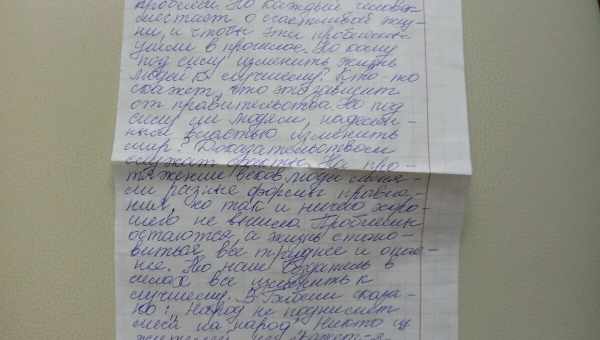 проблем. Но каждый человек
мечтает о счастливой жиз-
ни, и чтобы эти проблемы
ушли в прошлое. Но кому
под силу изменить жизнь
людей к лучшему? Кто-то
скажет, что это зависит
от правительства. Но под
силу ли людям, наделён-
ным властью изменить
мир? Доказательством
служат факты. На про-
тяжении веков люди меня-
ли разные формы правле-
ния, но так и ничего хоро-
шего не вышло. Проблемы
остаются, а жизнь стано-
виться все труднее и опас-
нее. Но наш Создатель в
силах все изменить к
лучшему. В Библии сказа-
но: "Народ не поднимет
меча на народ" Никто из
жителей не скажет-я